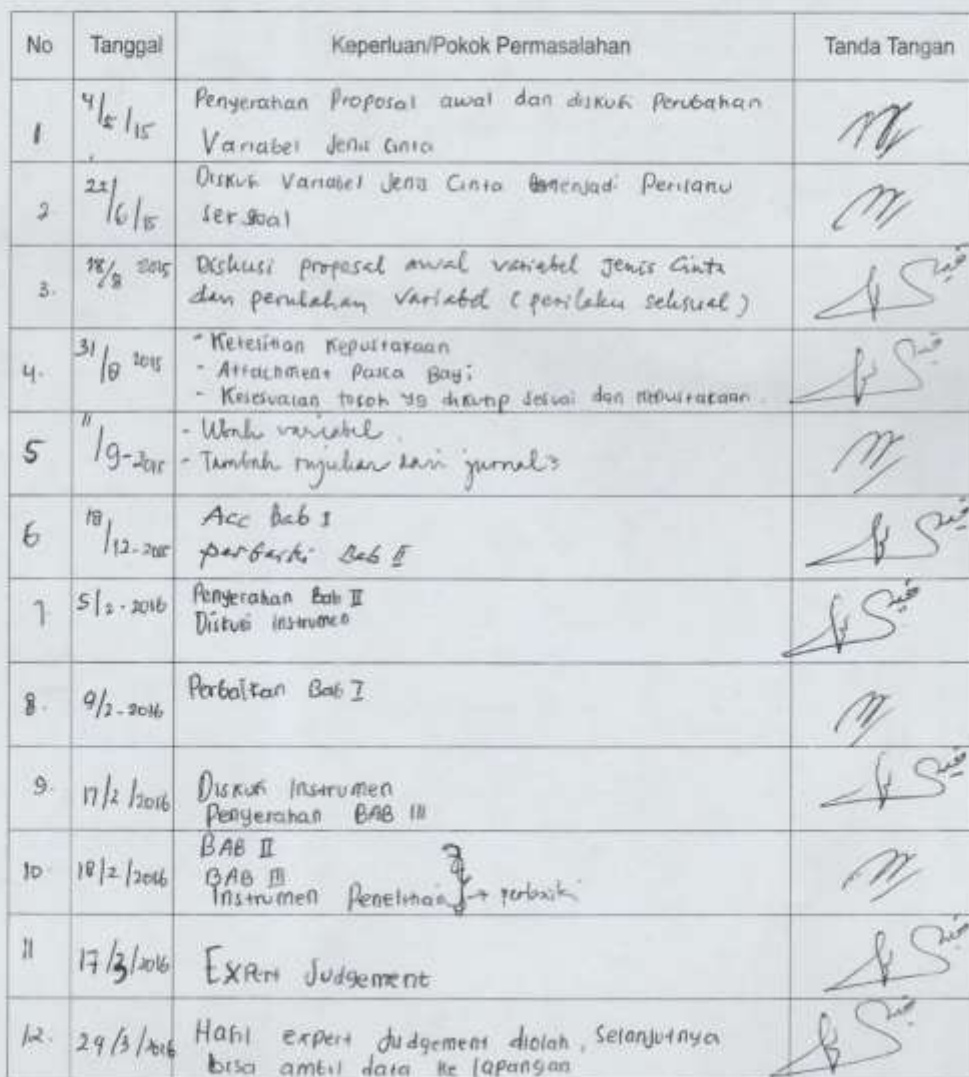 No Tanggal Keperluan/Pokok Permasalahan Tanda Tangan
1 4/5/15 Penyerahan Proposal awal dan diskusi Perubahan
Variabel Jenis Cinta
2. 22/6/15 Diskusi Variabel Jenis Cinta menjadi Perilaku
Seksual
3. 18/8 2015 Diskusi proposal awal variabel Jenis Cinta
dan perubahan variabel (perilaku seksual)
4. 31/8 2015 - Ketelitian Kepustakaan
- Attachment Pasca Bayi
- Kesesuaian tokoh yg dikutip sesuai dgn kepustakaan.
5 11/9-2015 - variabel
- Tambah rujukan dari jurnal2
6 18/12-2015 Acc Bab I
perbaiki Bab II
7 5/2-2016 Penyerahan Bab II
Diskusi instrumen
8. 9/2-2016 Perbaikan Bab I
9. 17/2/2016 Diskusi Instrumen
Penyerahan BAB III
10. 18/2/2016 BAB II
BAB III
Instrumen Penelitian } → perbaiki
11 17/3/2016 Expert Judgement
12. 29/3/2016 Hasil expert Judgement diolah, selanjutnya
bisa ambil data ke lapangan